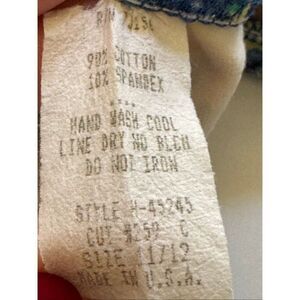 90% COTTON
10% SPANDEX
....
HAND WASH COOL
LINE DRY NO BLCH
DO NOT IRON
STYLE H-45245
CUT #359 C
SIZE 11/12
MADE IN U.S.A.